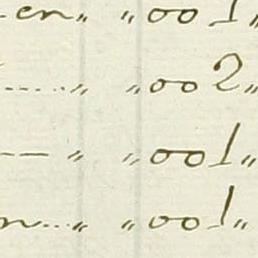 en „ „ 001 „
..... „ „ 002 „
— „ „ 001 „
n... „ „ 001 „